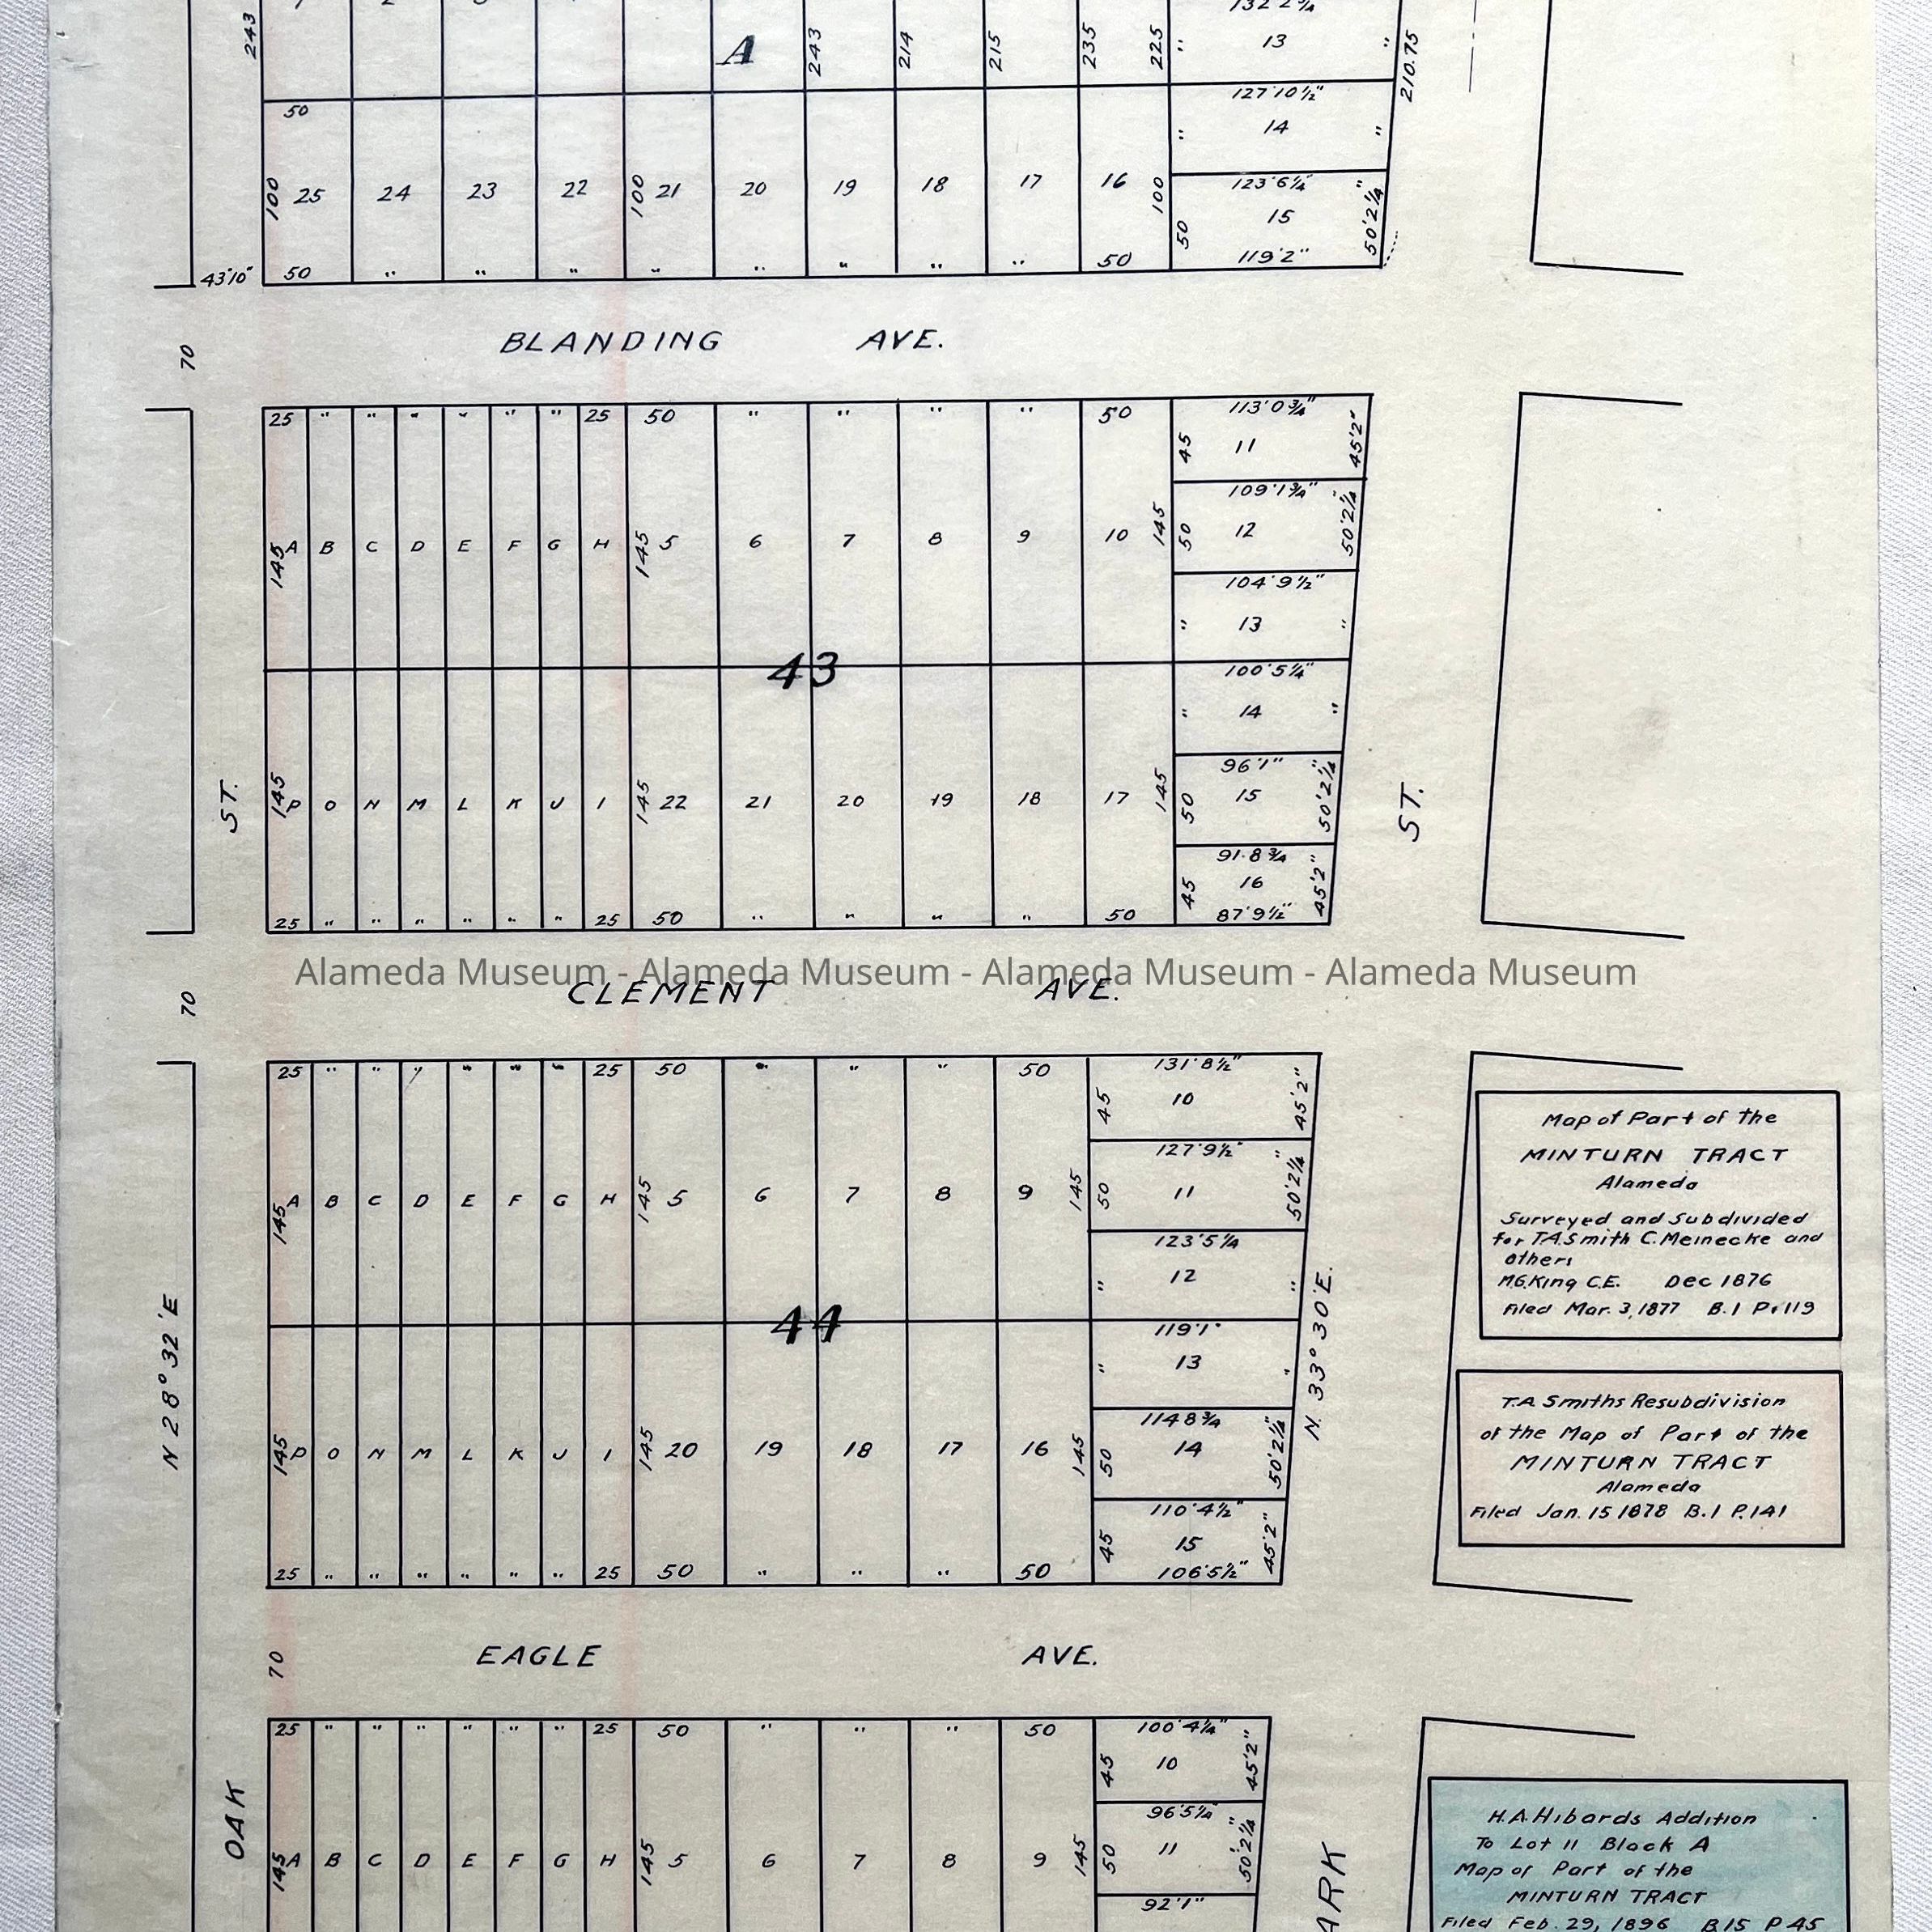 243 A 243 214 215 235 225 " 13 " 210.75
50 127'10½"
" 14 "
100 25 24 23 22 100 21 20 19 18 17 16 100 123'6¼"
50 15 50'2¼"
43'10" 50 " " " " " " " " 50 119'2"
70 BLANDING AVE.
25 " " " " " " 25 50 " " " " 50 113'0¾"
45 11 45'2"
109'1¾"
145 A B C D E F G H 145 5 6 7 8 9 10 145 50 12 50'2¼"
104'9½"
" 13 "
43
100'5¼"
" 14 "
96'1"
ST. 145 P O N M L K J I 145 22 21 20 19 18 17 145 50 15 50'2¼" ST.
91.8¾
45 16 45'2"
25 " " " " " " 25 50 " " " " 50 87'9½"
Alameda Museum - Alameda Museum - Alameda Museum - Alameda Museum
70 CLEMENT AVE.
25 " " " " " " 25 50 " " " 50 131'8½"
45 10 45'2"
127'9½"
145 A B C D E F G H 145 5 6 7 8 9 145 50 11 50'2¼"
123'5¼
" 12 "
44
119'1"
" 13 "
N 28° 32'E N. 33° 30'E.
114 8¾
145 P O N M L K J I 145 20 19 18 17 16 145 50 14 50'2¼"
110'4½"
45 15 45'2"
25 " " " " " " 25 50 " " " 50 106'5½"
Map of Part of the
MINTURN TRACT
Alameda
Surveyed and Subdivided
for T.A.Smith C.Meinecke and
others
M.G.King C.E. Dec 1876
Filed Mar. 3, 1877 B.1 P.119
T.A. Smiths Resubdivision
of the Map of Part of the
MINTURN TRACT
Alameda
Filed Jan. 15 1878 B.1 P.141
70 EAGLE AVE.
25 " " " " " " 25 50 " " " 50 100'4¼"
45 10 45'2"
96'5¼"
OAK 145 A B C D E F G H 145 5 6 7 8 9 145 50 11 50'2¼"
92'1"
ARK
H.A.Hibards Addition
To Lot 11 Block A
Map of Part of the
MINTURN TRACT
Filed Feb. 29, 1896 B15 P 45